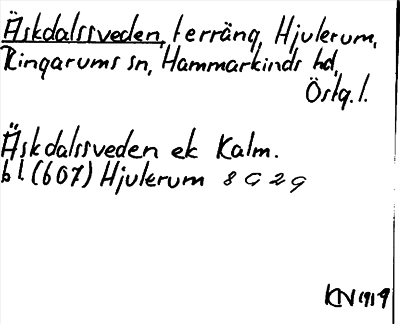 Äskdalssveden, terräng, Hjulerum,
Ringarums sn, Hammarkinds hd,
Östg.l.
Äskdalssveden ek Kalm.
bl. (607) Hjulerum 8 G 2 g
KN 1919